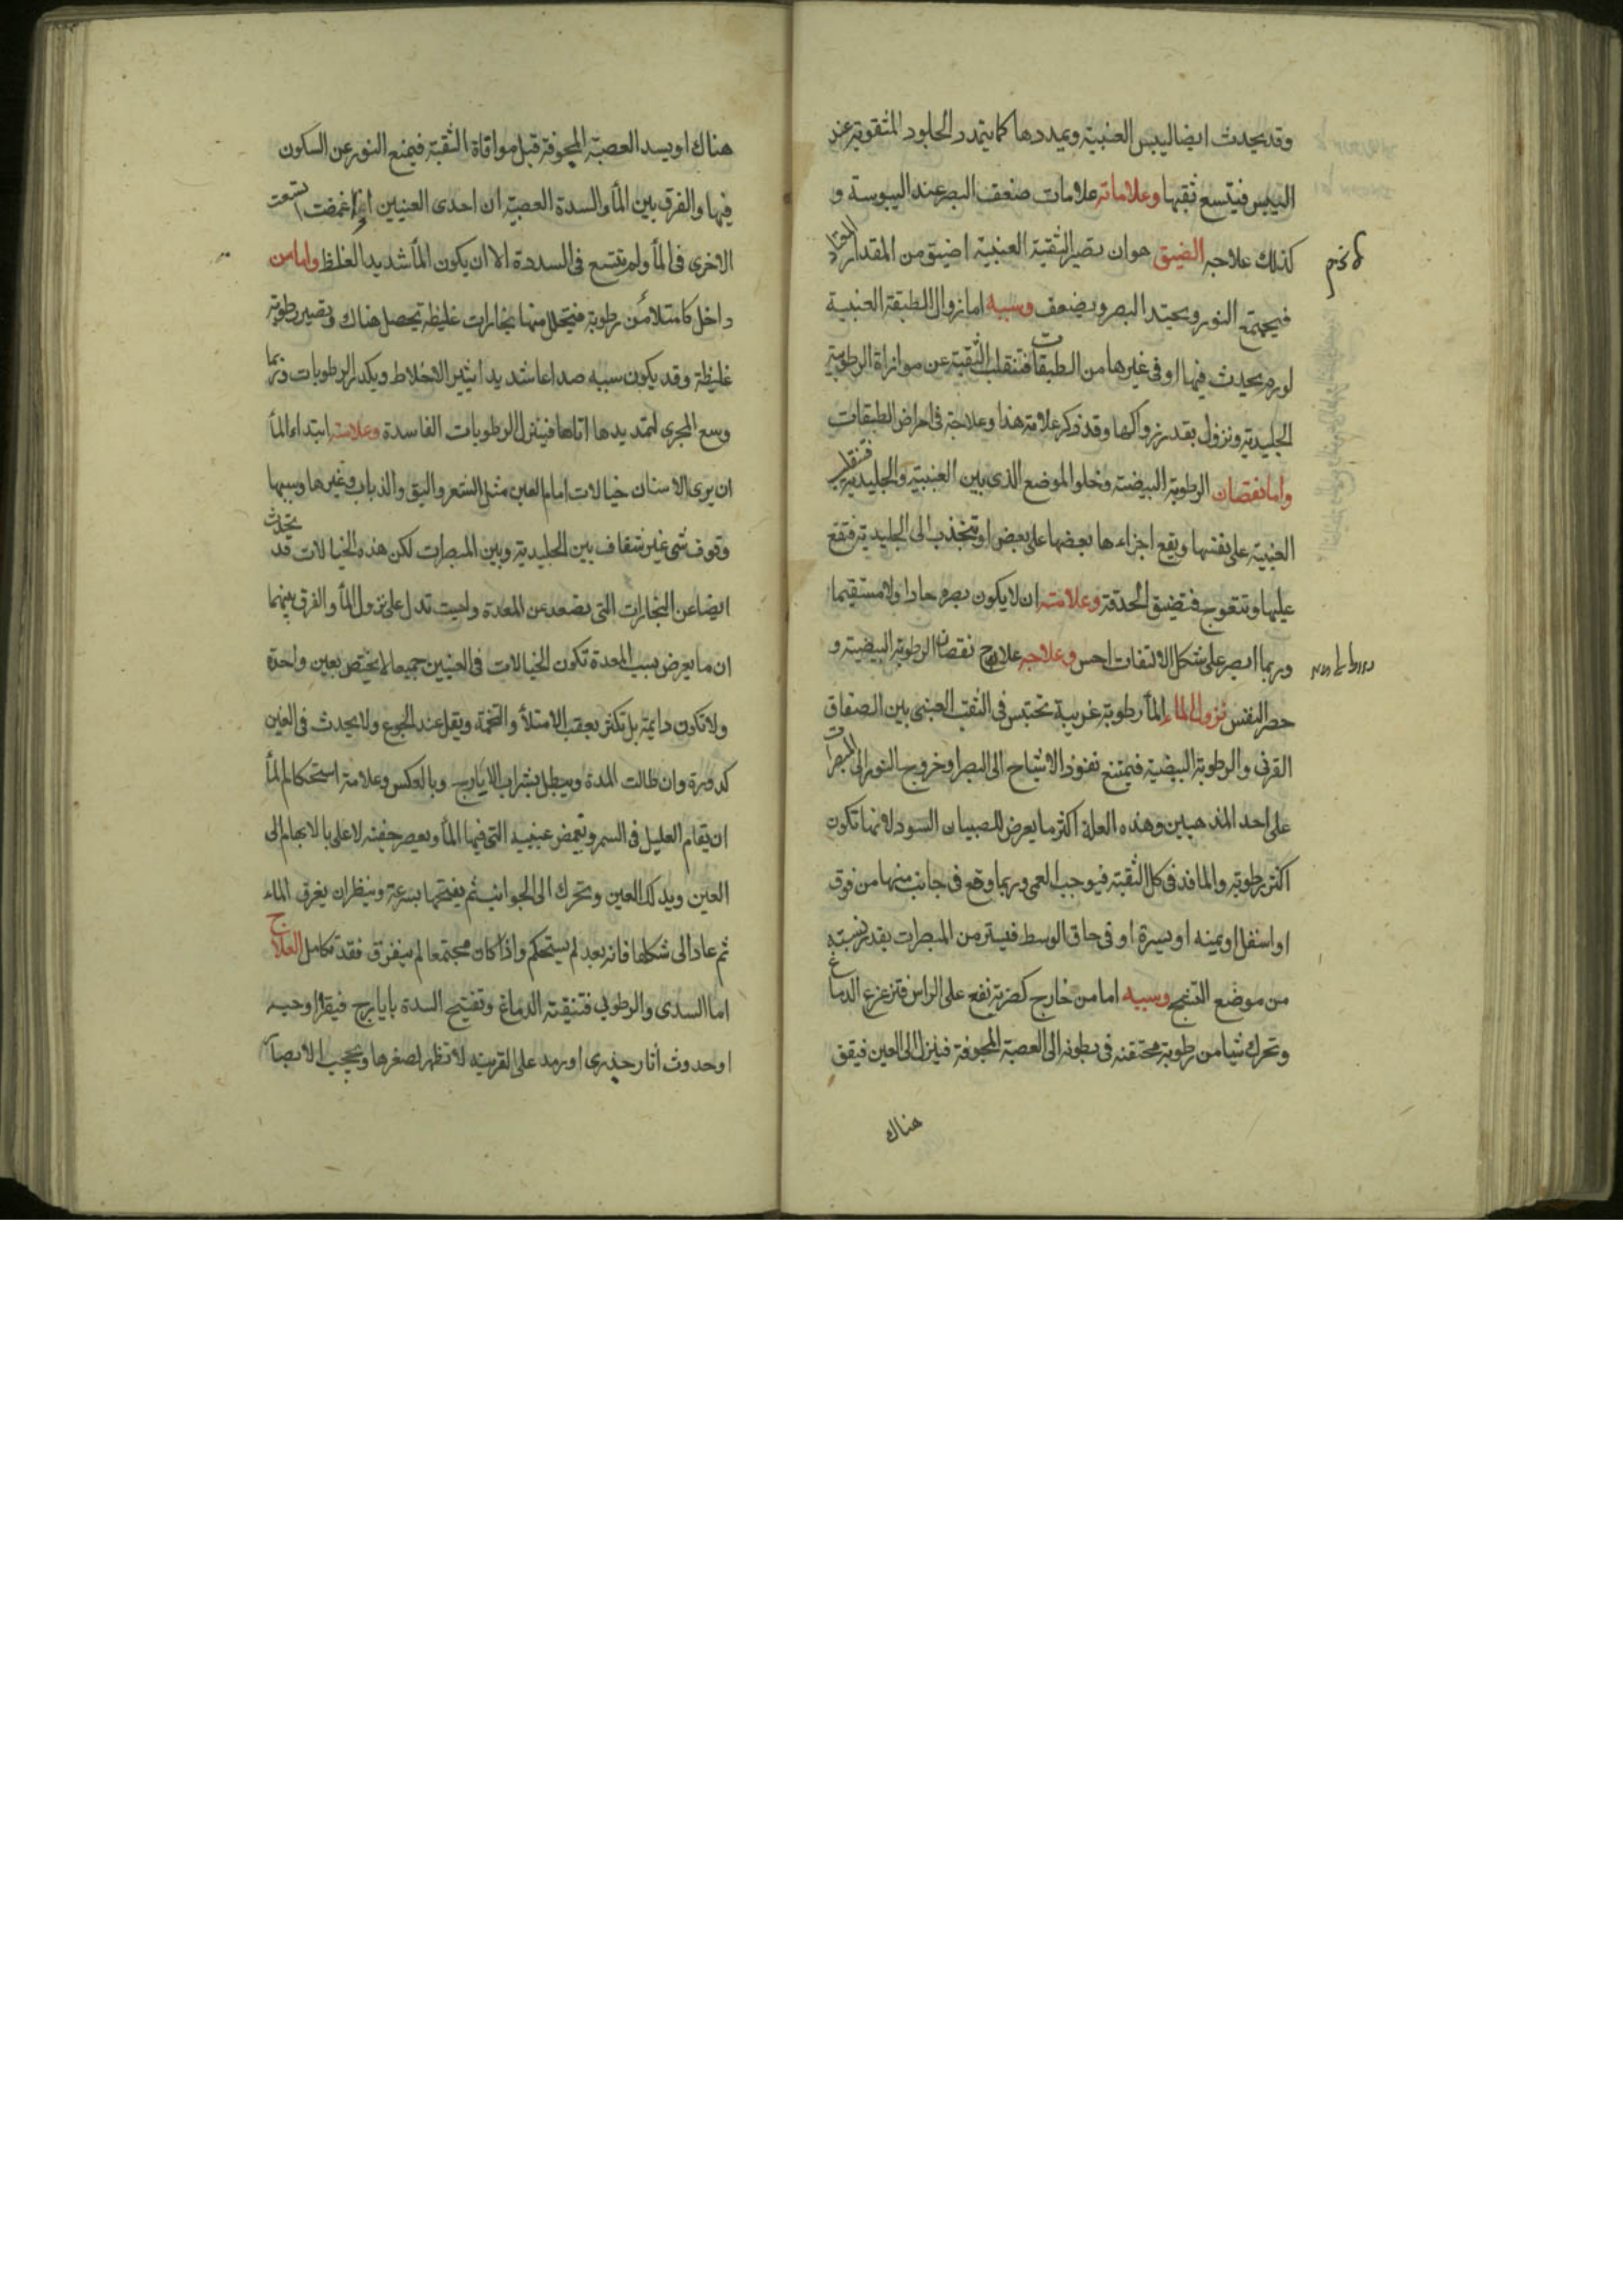 وقد يحدث ايضا ليبس العنبية ويمددها كما يتمدد الجلود المثقوبة عند
اليبس فيتسع ثقبها وعلاماته علامات ضعف البصر عند اليبوسة و
كذلك علاجه الضيق هو ان يصير الثقبة العنبية اضيق من المقدار المعتاد
فيجتمع النور ويحتد البصر ويضعف وسببه اما زوال الطبقة العنبية
لورم يحدث فيها او فى غيرها من الطبقات فتنقلب الثقبة عن موازاة الرطوبة
الجليدية ونزول بقدر زوالها وقد ذكر علامة هذا وعلاجه فى امراض الطبقات
واما نقصان الرطوبة البيضية وخلو الموضع الذى بين العنبية والجليدية
العنبية على نفسها ويقع اجزاءها بعضها على بعض او تنجذب الى الجليدية فتقع
عليها وتتعوج فتضيق الحدقة وعلامته ان لا يكون بصره حادا ولا مستقيما
وربما ابصر على شكل الالتفات احس وعلاجه علاج نقصان الرطوبة البيضية و
حصر النفس نزول الماء المأ رطوبة غريبة تحتبس فى الثقب العنبى بين الصفاق
القرنى والرطوبة البيضية فيمنع نفوذ الاشباح الى البصر او خروج النور الى المبصرات
على احد المذهبين وهذه العلة اكثر ما يعرض للصبيان السود لانها تكون
اكثر رطوبة والما قد فى كل الثقبة فيوجب العمى وربما وقع فى جانب منها من فوق
او اسفل او يمينه او يسيرة او فى حاق الوسط فيستر من المبصرات بقدر نسبته
من موضع الشبح وسببه اما من خارج كضربة تقع على الراس فتزعزع الدماغ
وتحرك شيا من رطوبة محتقنه فى بطونه الى العصبة المجوفة فينزل الى العين فيقف
هناك
هناك او يسد العصبة المجوفة قبل موافاة الثقبة فيمنع النور عن السكون
فيها والفرق بين المأ والسدة العصبية ان احدى العينين اذا غمضت اتسعت
الاخرى فى المأ ولم تتسع فى السددة الا ان يكون المأ شديد الغلظ واما من
داخل كامتلأ من رطوبة فيتحلل منها بخارات غليظة يحصل هناك وتصير رطوبة
غليظة وقد يكون سببه صداعا شديدا يثير الاخلاط ويكدر الرطوبات وربما
وسع المجرى لتمديدها اتاها فينزل الرطوبات الفاسدة وعلامته ابتداء المأ
ان يرى الانسان خيالات امام العين مثل الشعر والبق والذباب وغيرها وسببها
وقوف شى غير شفاف بين الجليدية وبين المبصرات لكن هذه الخيالات قد يحدث
ايضا عن البخارات التى يصعد عن المعدة وليست تدل على نزول المأ والفرق بينهما
ان ما يعرض بسبب المعدة تكون الخيالات فى العينين جميعا لا يختص بعين واحدة
ولا تكون دايمة بل تكثر بعقب الامتلأ والتخمة ويقل عند الجوع ولا يحدث فى العين
كدورة وان طالت المدة ويبطل بشراب الايارج وبالعكس وعلامة استحكام المأ
ان يقام العليل فى السمر وتغمض عينيه التى فيها المأ ويعصر جفنه الاعلى بالابهام الى
العين ويدلك العين وتحرك الى الجوانب ثم يفتحها بسرعة وينظر ان يفرق الماء
ثم عاد الى شكلها فانه بعد لم يستحكم واذا كان مجتمعا لم يتفرق فقد تكامل العلاج
اما السدى والرطوبى فتنقية الدماغ وتفتيح السدة بايارج فيقرا وحب
او حدوث اثار جذرى او رمد على القرنية لا تظهر لصغرها وتحجب الابصار